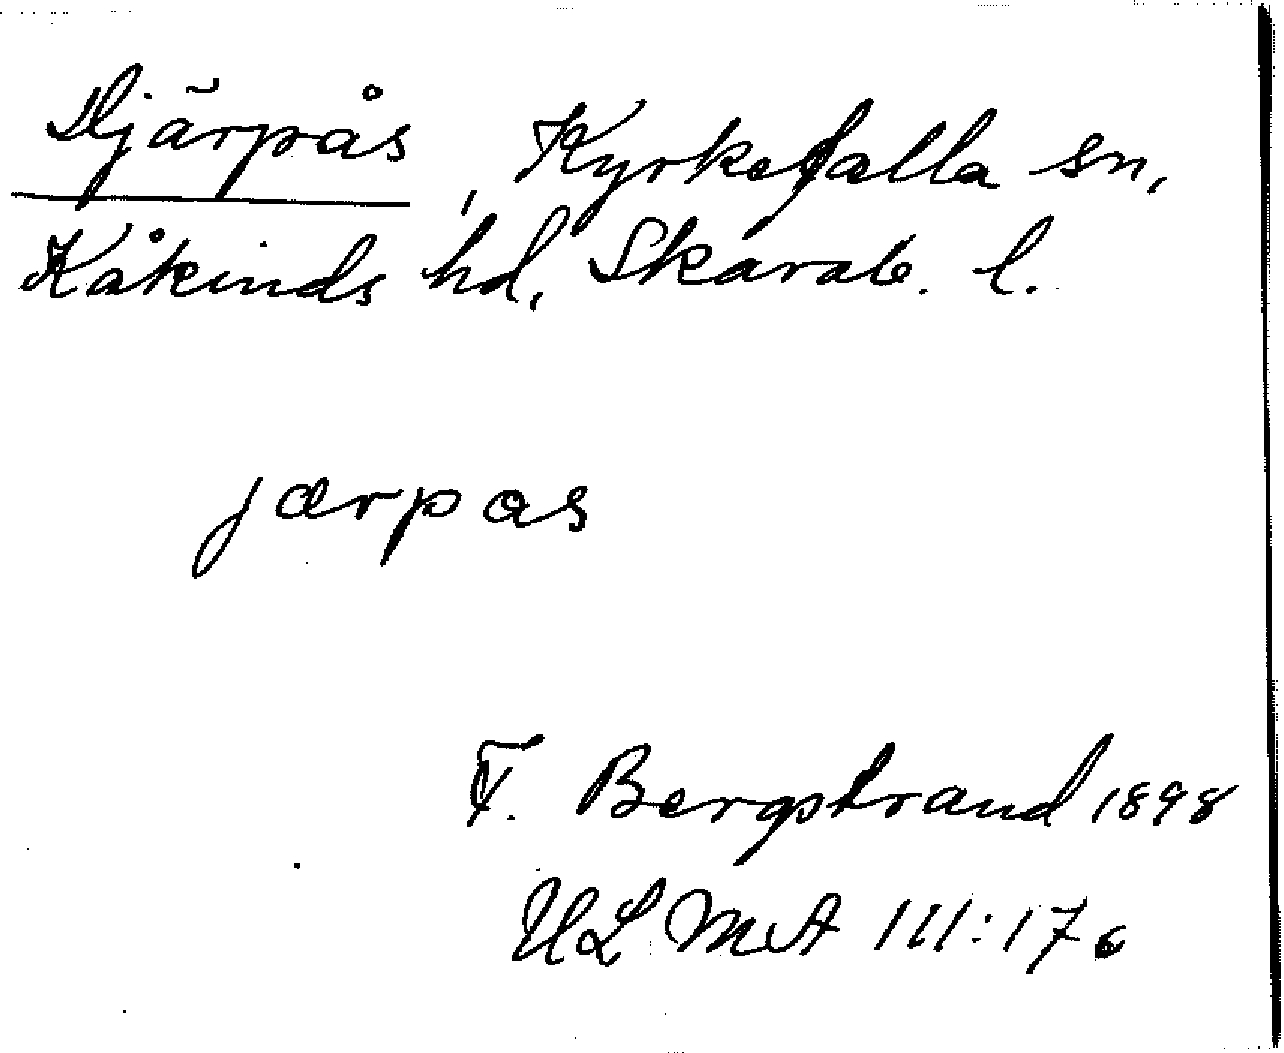 Djärpås, Kyrkefalla sn,
Kåkinds hd, Skarab. l.
jærpas
F. Bergstrand 1898
ULMA 111:17c